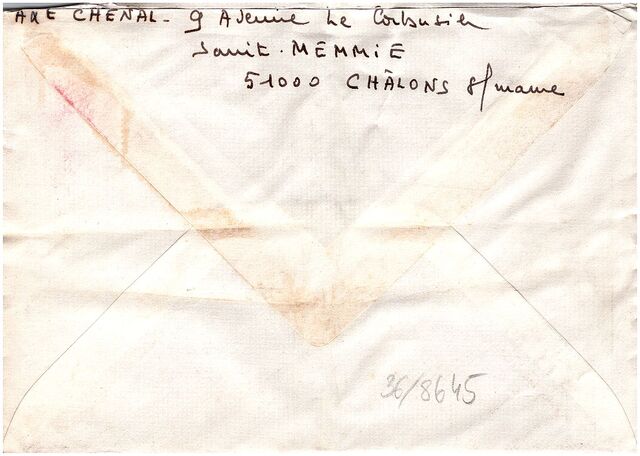 AXE CHENAL - 9 Avenue Le Corbusier
Saint-MEMMIE
51000 CHÂLONS s/marne
36/8645